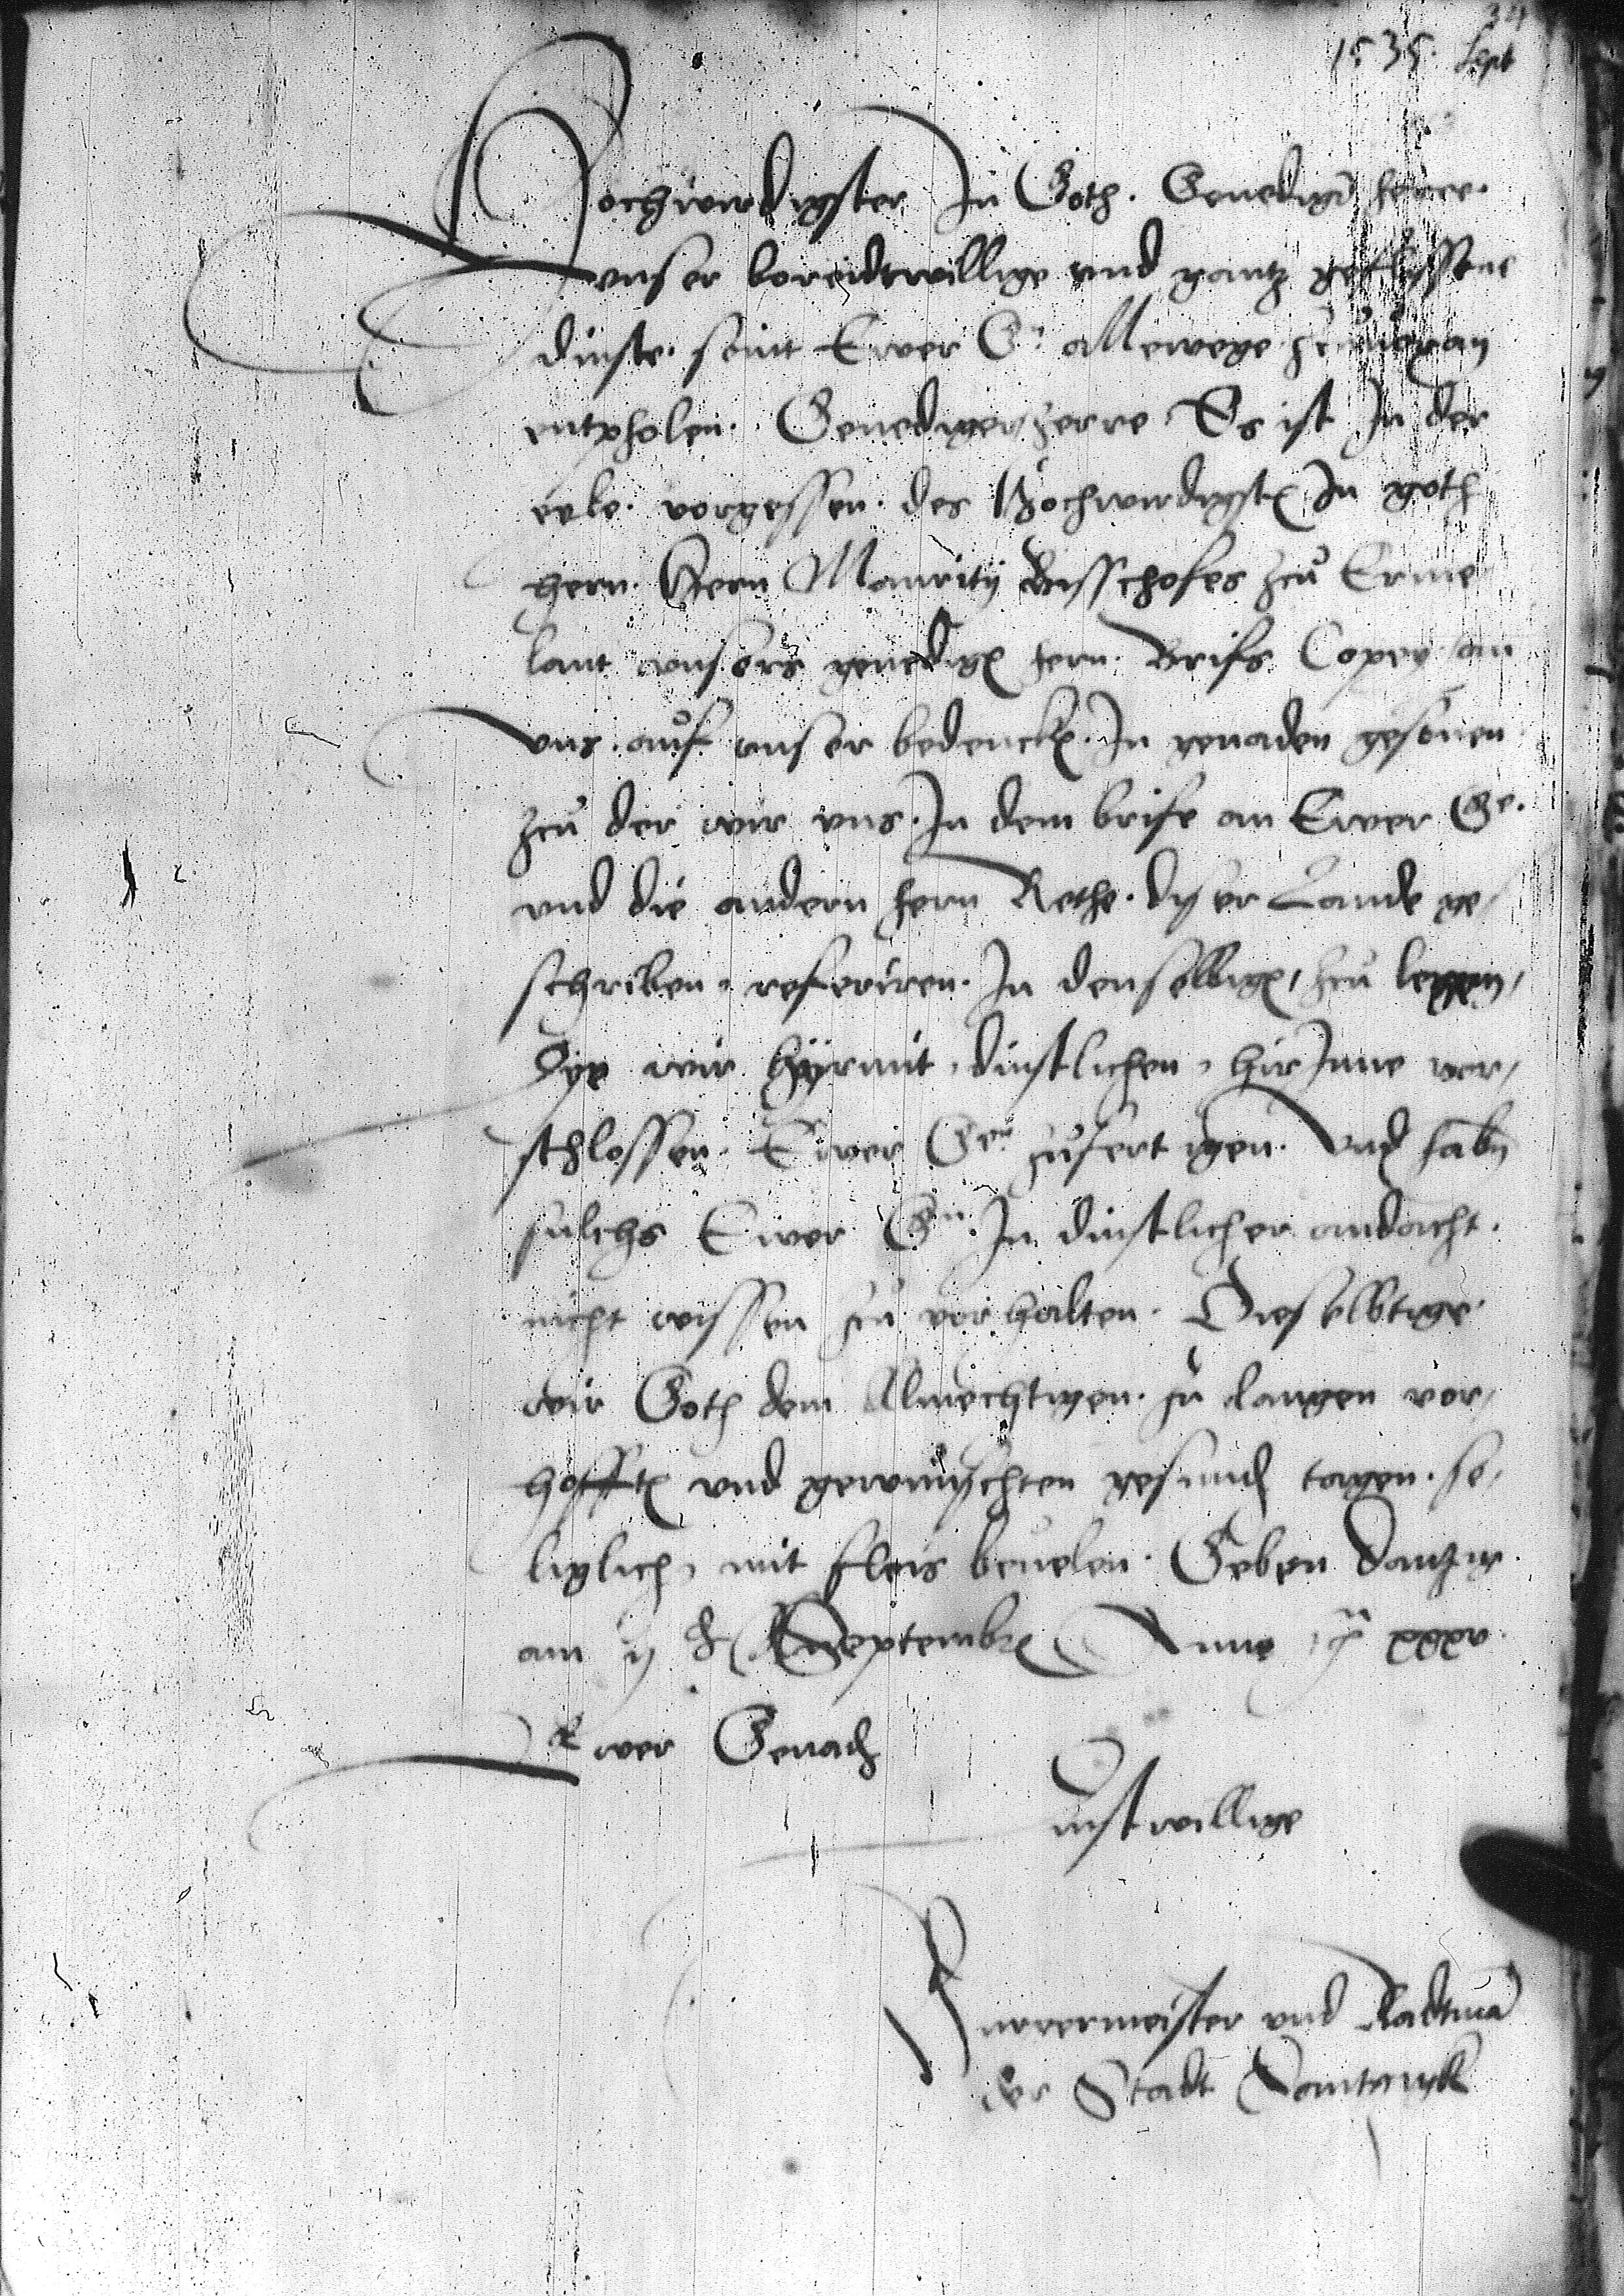 34
1535. Sept
Hochwirdigster In Goth. Genediger herre.
vnser bereidtwillige vnd gantz geflissene
dinste. seint Ewer G. allewege zcuuoran
entpholen. Genediger herre, Es ist In der
eyle. vorgessen. des Hochwirdigsten In goth
hern. Hern Mauritij Bisschofes zcu Erme
lant vnsers genedigen hern. Brifs Copey an
vns. auf vnser bedencken. In genaden gesonnen
zcu der wir vns. In dem brife an Ewer Ge.
vnd die andern hern Rethe. dyser Lande ge,
schriben, referiren. In denselbigen, zcu legen,
Dye wir hyrmit, dinstlichen, hir Inne vor,
schlossen. Ewer Gen zufertigen. Vnd haben
sulchs Ewer Gn. In dinstlicher andacht.
nicht wissen zu vorhalten. Dieselbtige.
wir Goth dem Almechtigen. zu langen vor,
hofften vnd gewunschten gesund tagen. se,
liglich, mit fleis beuelen. Geben Dantzig.
am ij Septembris Anno xxxv.
Ewer Genad
Dinstwillige
Burgermeister vnd Radtman
der Stadt Dantzigk